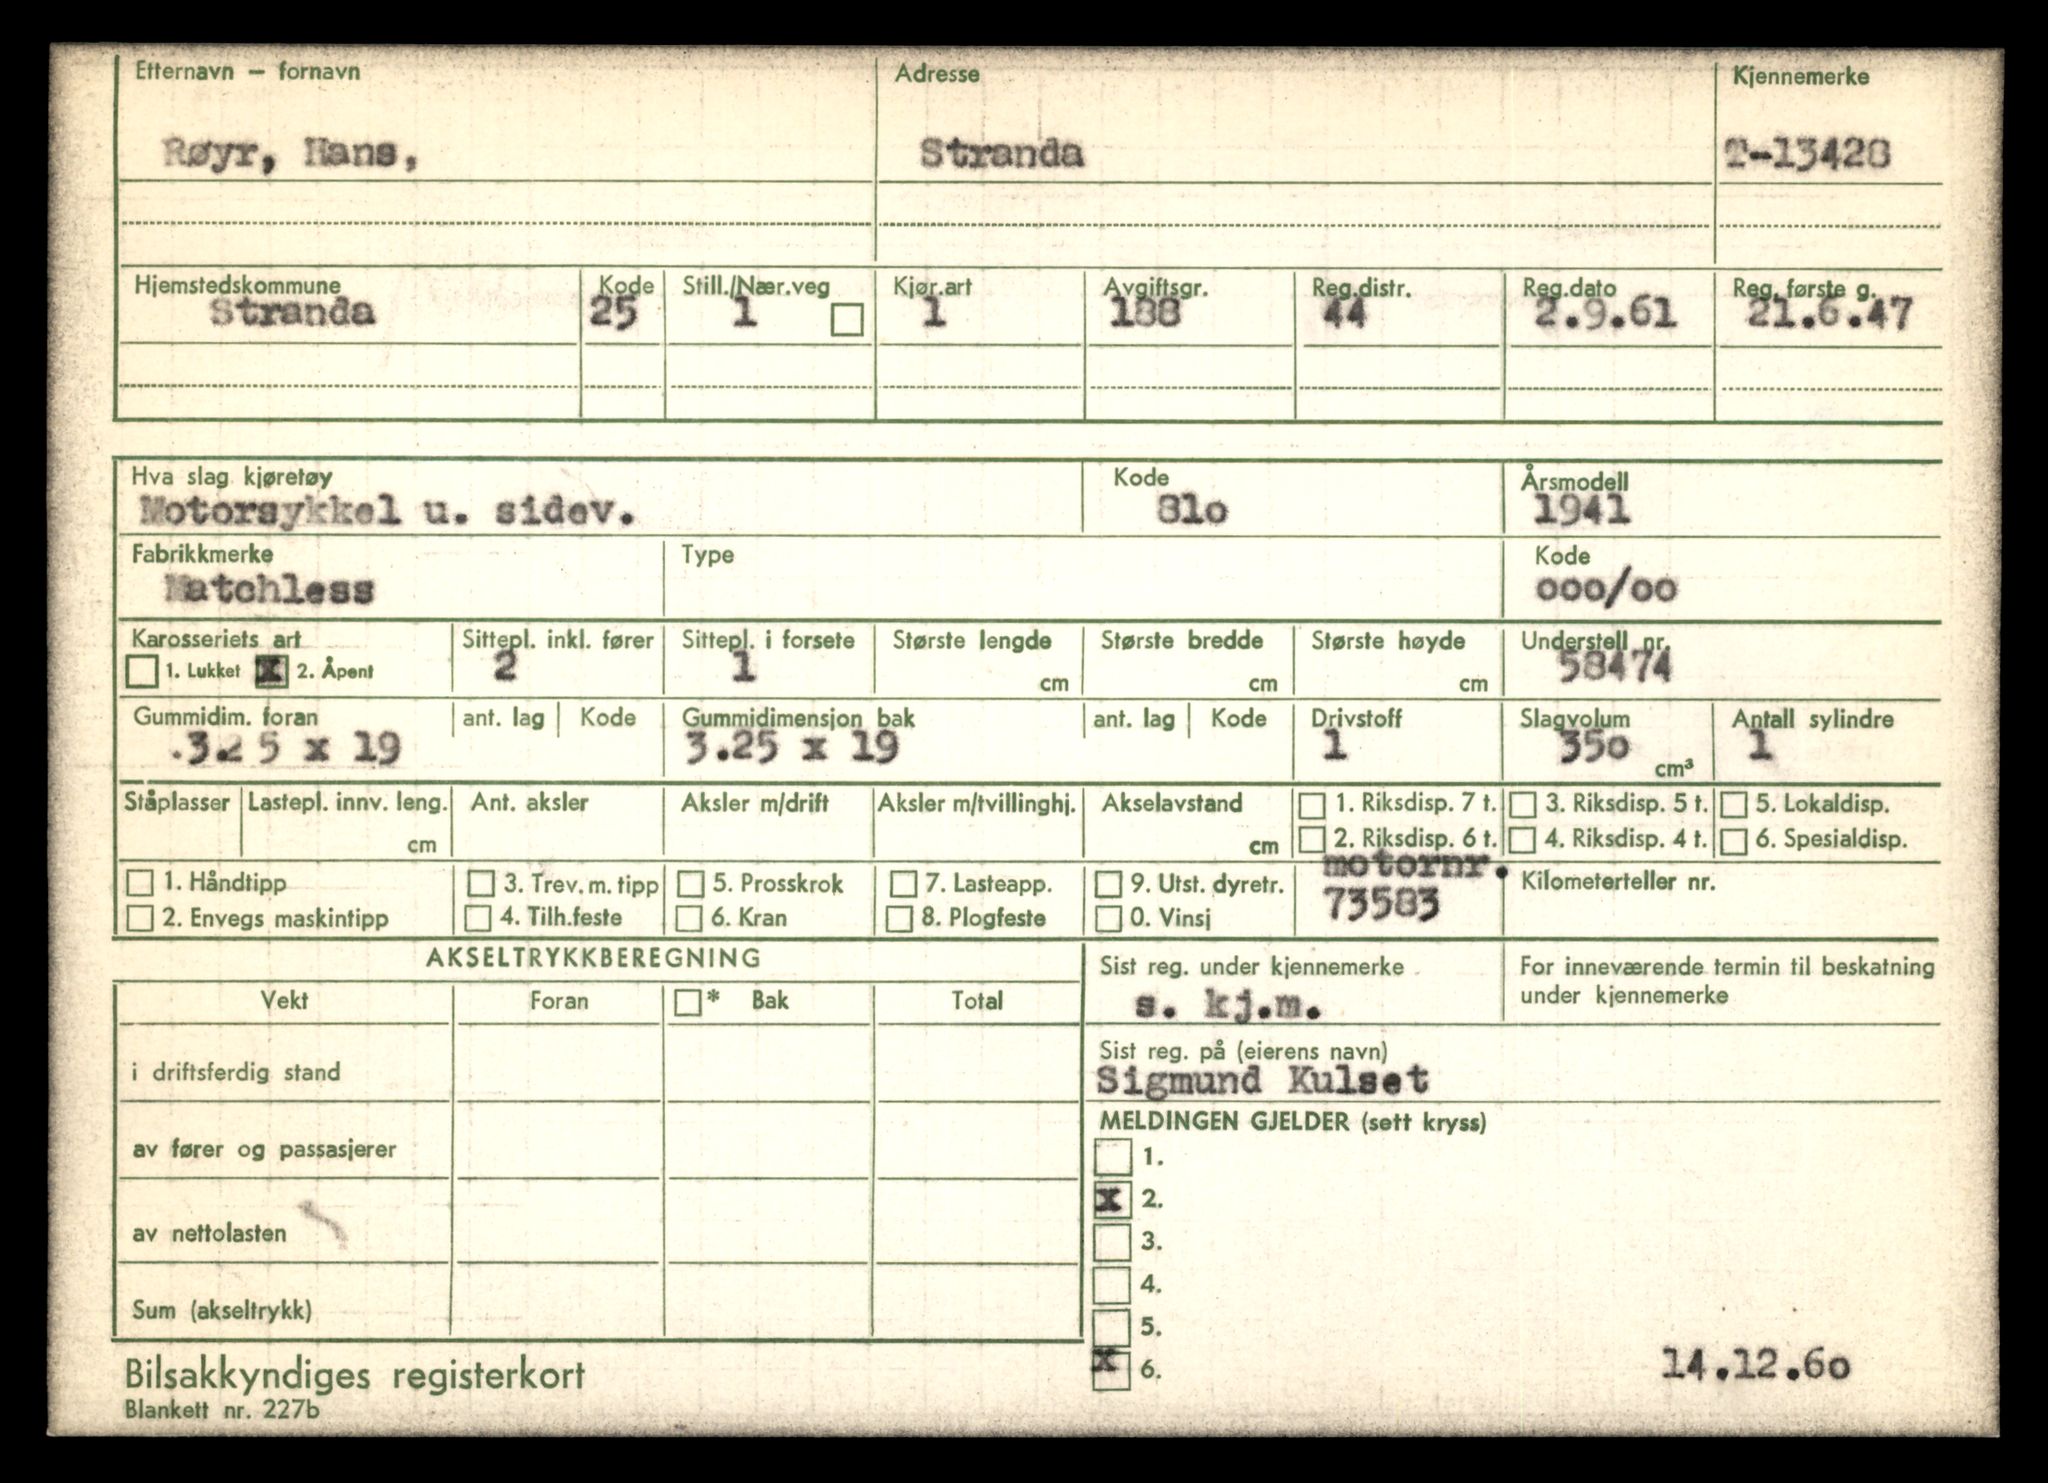 Etternavn – fornavn Adresse Kjennemerke
Røyr, Hans, Stranda T-13428
Hjemstedskommune Kode Still./Nær.veg Kjør.art Avgiftsgr. Reg.distr. Reg.dato Reg. første g.
Stranda 25 1 1 188 44 2.9.61 21.6.47
Hva slag kjøretøy Kode Årsmodell
Motorsykkel u. sidev. 81o 1941
Fabrikkmerke Type Kode
Matchless ooo/oo
Karosseriets art Sittepl. inkl. fører Sittepl. i forsete Største lengde Største bredde Største høyde Understell nr.
1. Lukket x 2. Åpent 2 1 cm cm cm 58474
Gummidim. foran ant. lag Kode Gummidimensjon bak ant. lag Kode Drivstoff Slagvolum Antall sylindre
.3.2 5 x 19 3.25 x 19 1 35o cm³ 1
Ståplasser Lastepl. innv. leng. Ant. aksler Aksler m/drift Aksler m/tvillinghj. Akselavstand 1. Riksdisp. 7 t. 3. Riksdisp. 5 t. 5. Lokaldisp.
cm cm 2. Riksdisp. 6 t. 4. Riksdisp. 4 t. 6. Spesialdisp.
motornr.
1. Håndtipp 3. Trev. m. tipp 5. Prosskrok 7. Lasteapp. 9. Utst. dyretr. Kilometerteller nr.
2. Envegs maskintipp 4. Tilh.feste 6. Kran 8. Plogfeste 0. Vinsj 73583
AKSELTRYKKBEREGNING Sist reg. under kjennemerke For inneværende termin til beskatning
under kjennemerke
Vekt Foran * Bak Total s. kj.m.
Sist reg. på (eierens navn)
i driftsferdig stand Sigmund Kulset
MELDINGEN GJELDER (sett kryss)
av fører og passasjerer 1.
x 2.
av nettolasten 3.
4.
Sum (akseltrykk) 5.
x 6. 14.12.6o
Bilsakkyndiges registerkort
Blankett nr. 227b